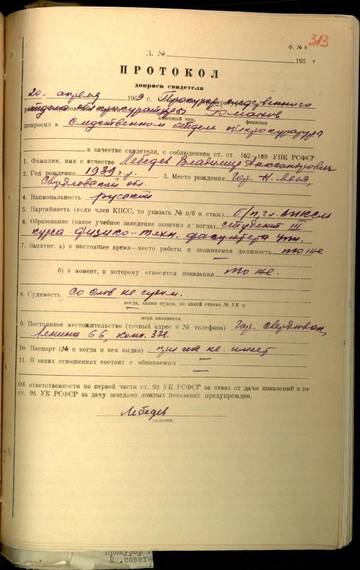 Ф. № 8
313
Д. № 195 г
ПРОТОКОЛ
допроса свидетеля
20 апреля 1959 г. Прокурор следственного
отдела облпрокуратуры Романов
классный чин, фамилия
допросил в следственном отделе облпрокуратуры
в качестве свидетеля, с соблюдением ст. ст. 162–168 УПК РСФСР
1. Фамилия, имя и отчество Лебедев Владимир Александрович
2. Год рождения 1939 г. 3. Место рождения гор. Н. Ляля
Свердловской обл.
4. Национальность русский
5. Партийность (если член КПСС, то указать № п/б и стаж) б/п, чл. ВЛКСМ
6. Образование (какое учебное заведение окончил и когда) студент III
курса физико-техн. факультета УПИ
7. Занятие: а) в настоящее время — место работы и занимаемая должность то же
б) в момент, к которому относятся показания то же
8. Судимость со слов не судим.
когда, каким судом, по какой статье УК и
мера наказания
9. Постоянное местожительство (точный адрес и № телефона) гор. Свердловск,
Ленина 66, комн. 321
10. Паспорт (№ и когда и кем выдан) при себе не имеет
11. В каких отношениях состоит с обвиняемым —
Об ответственности по первой части ст. 92 УК РСФСР за отказ от дачи показаний и по
ст. 95 УК РСФСР за дачу заведомо ложных показаний предупрежден.
Лебедев
подпись